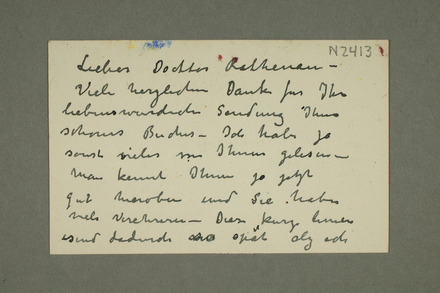 N2413
Lieber Doctor Rathenau –
Viele herzlichen Dank für Ihre
liebenswürdige Sendung Ihres
schönes Buches – Ich habe ja
sonst vieles von Ihnen gelesen –
Man kennt Ihnen ja jetzt
gut hieroben und Sie haben
viele Verehrern – Diese kurze
sind dadurch so spät als ich